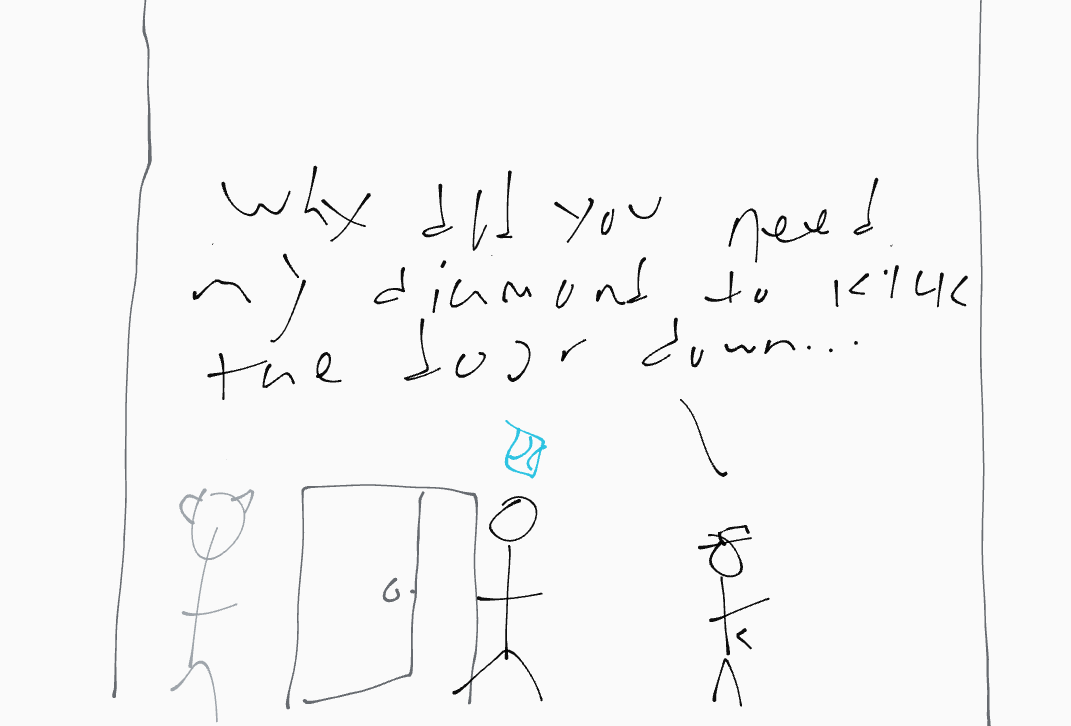 why did you need
my diamond to kick
the door down...